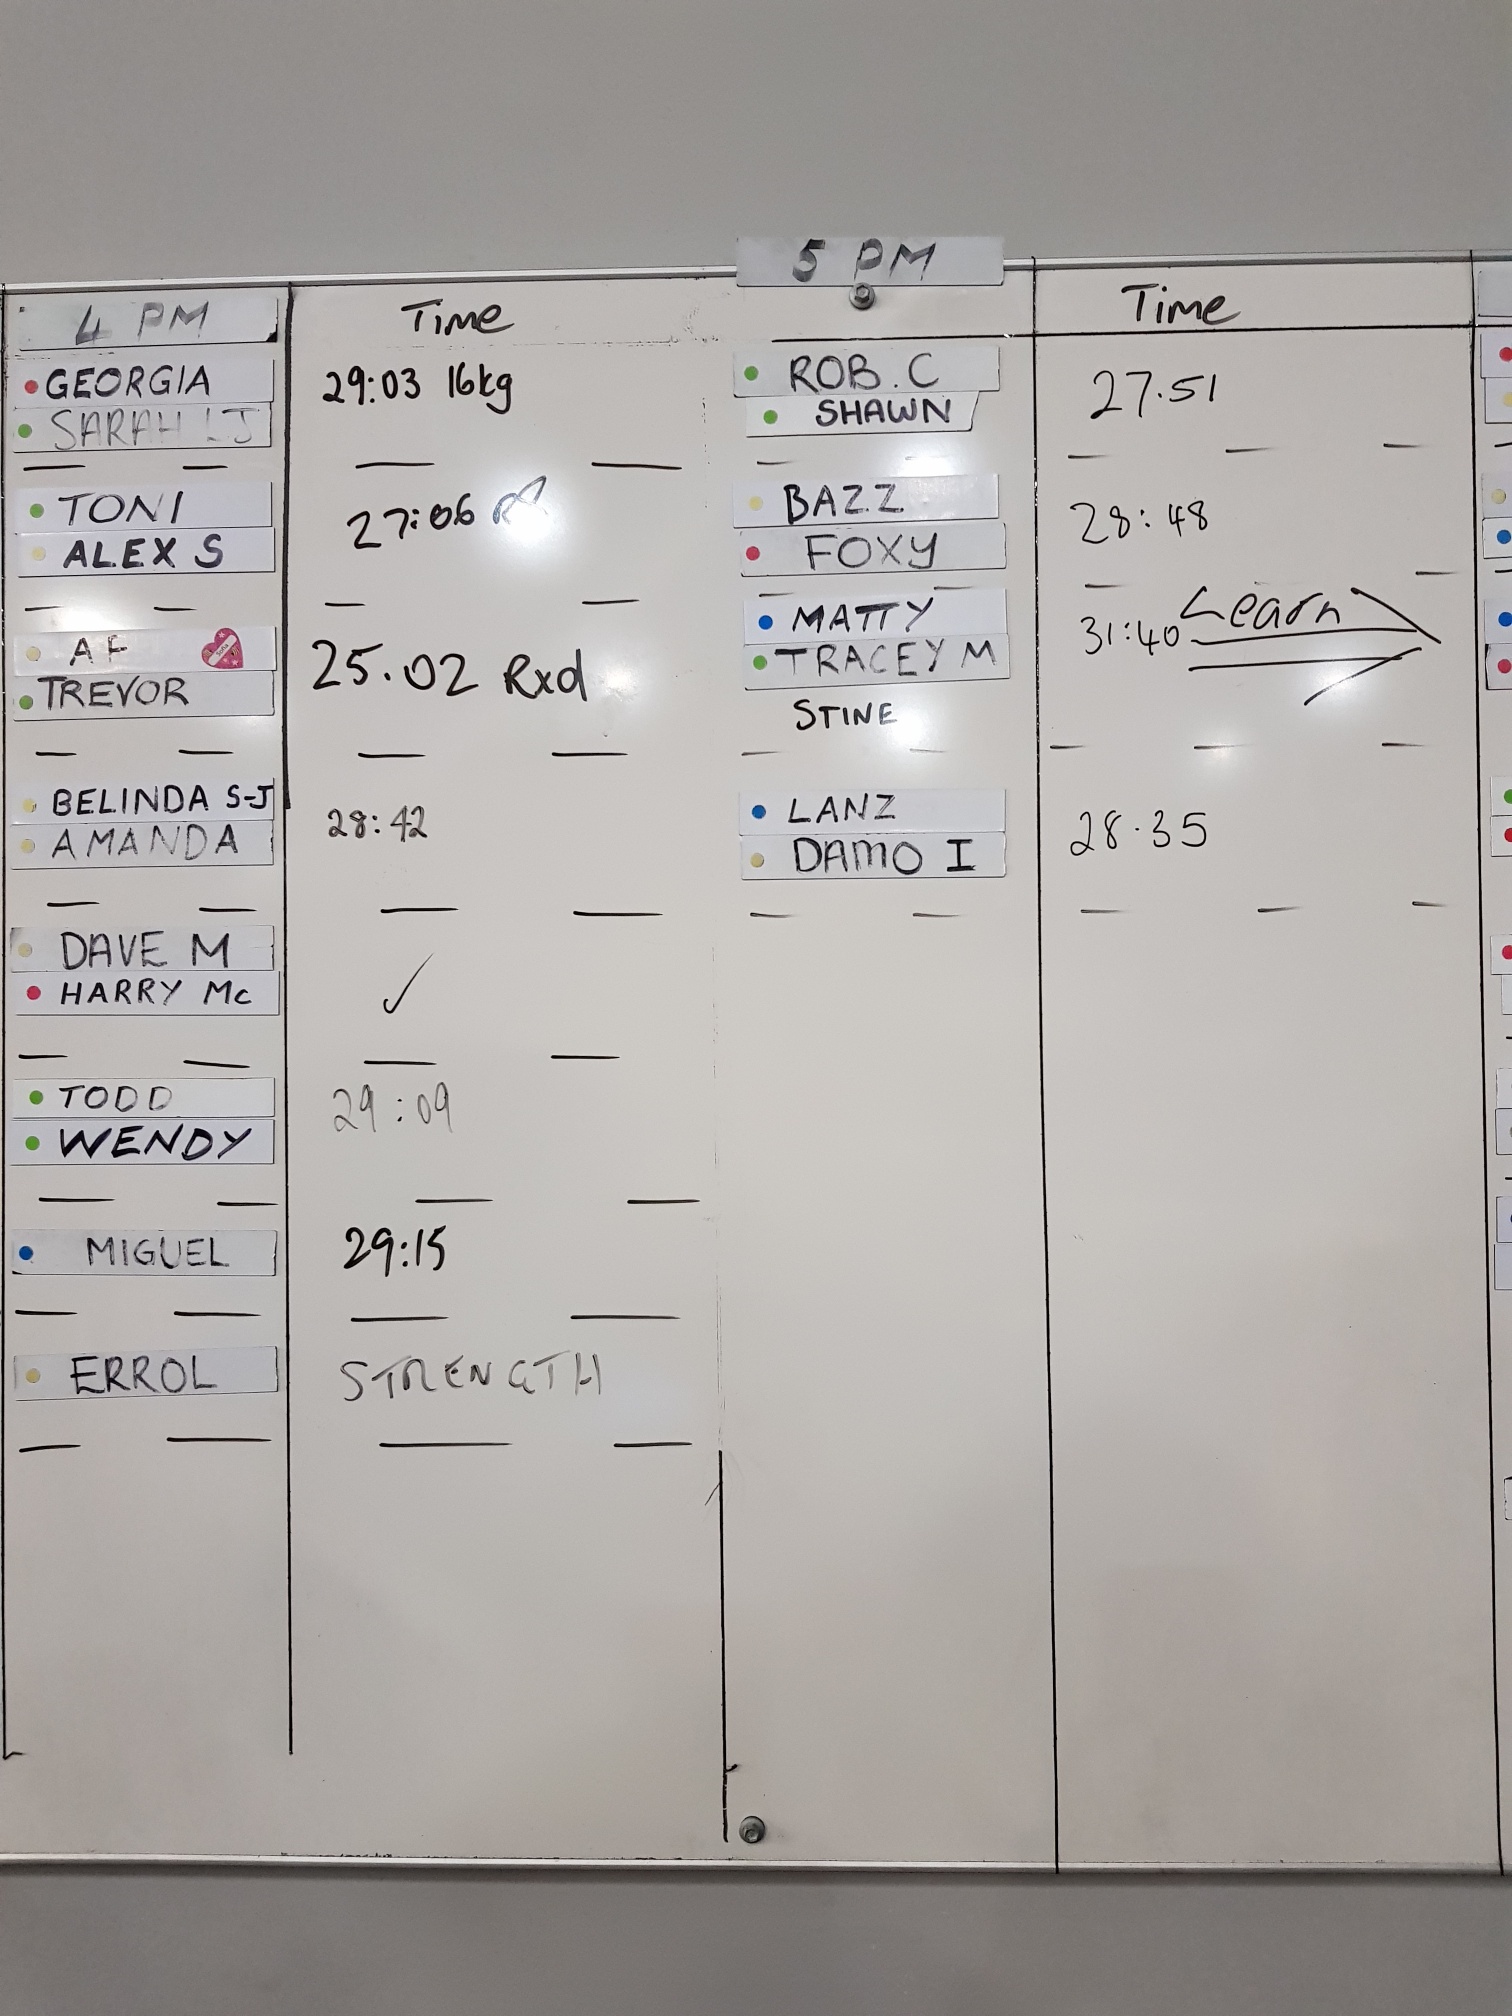 4 PM
Time
GEORGIA
29:03 16kg
SARAH
TONI
27:06
ALEX S
AF
TREVOR
25.02 Rxd
BELINDA S-J
28:42
AMANDA
DAVE M
HARRY Mc
✓
TODD
29:09
WENDY
MIGUEL
29:15
ERROL
STRENGTH
5 PM
Time
ROB.C
27.51
SHAWN
BAZZ
28:48
FOXY
MATTY
31:40 Learn
TRACEY M
STINE
LANZ
28.35
DAMO I